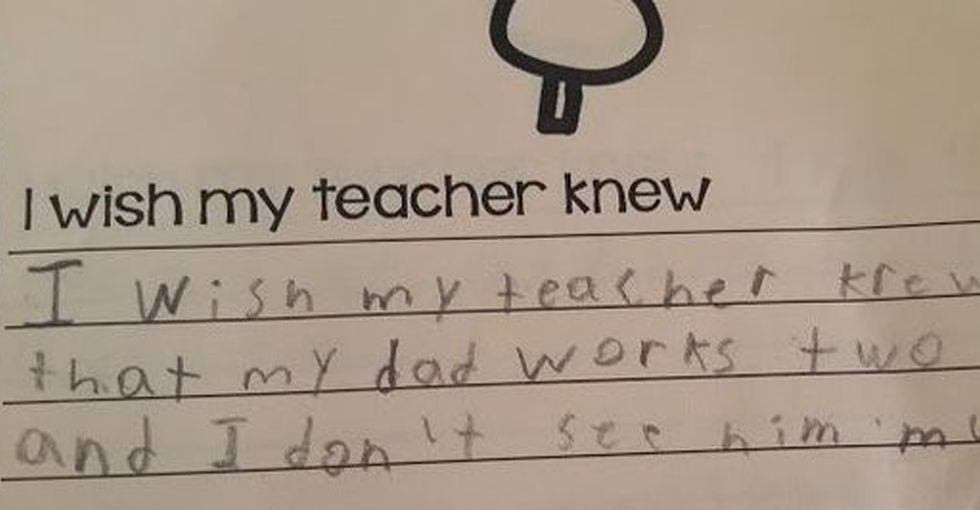 I wish my teacher knew
I wish my teacher
that my dad works two
and I don't see him